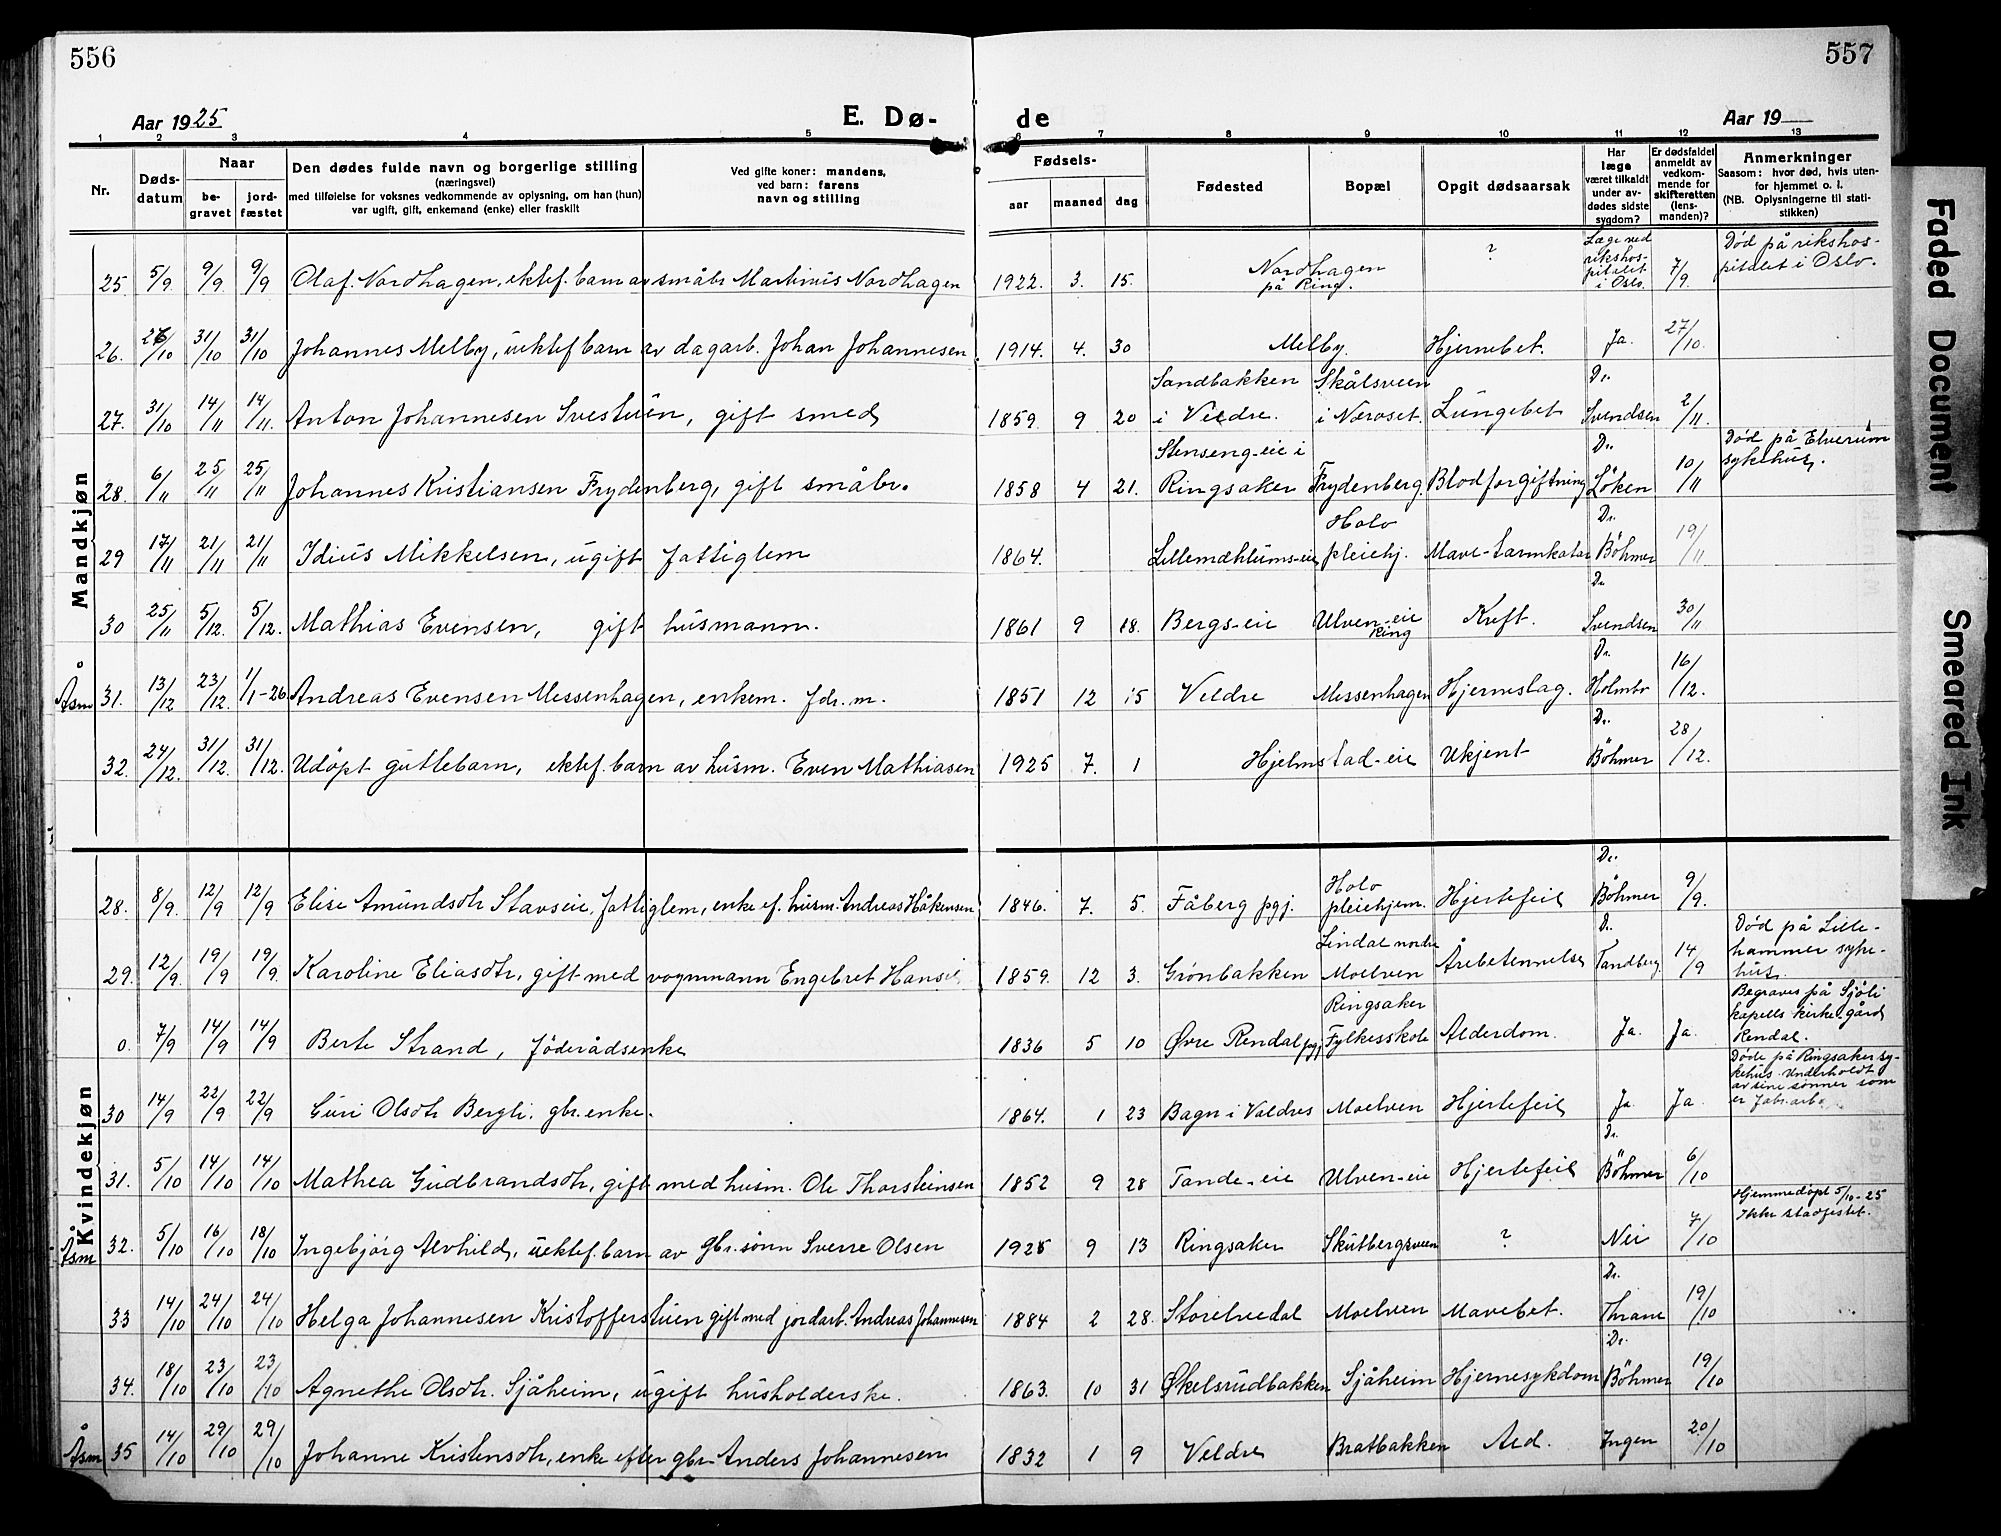 556
557
Aar 1925
E. Dø-
de
Aar 19
1 2 3 4 5 6 7 8 9 10 11 12 13
Nr.
Døds-
datum
Naar
be-
gravet
jord-
fæstet
Den dødes fulde navn og borgerlige stilling
(næringsvei)
med tilføielse for voksnes vedkommende av oplysning, om han (hun)
var ugift, gift, enkemand (enke) eller fraskilt
Ved gifte koner: mandens,
ved barn: farens
navn og stilling
Fødsels-
aar
maaned
dag
Fødested
Bopæl
Opgit dødsaarsak
Har
læge
været tilkaldt
under av-
dødes sidste
sygdom?
Er dødsfaldet
anmeldt av
vedkom-
mende for
skifteretten
(lens-
manden)?
Anmerkninger
Saasom: hvor død, hvis uten-
for hjemmet o. l.
(NB. Oplysningerne til stati-
stikken)
Mandkjøn
25. 5/9 9/9 9/9 Olaf Nordhagen, ektef. barn av småbr. Martinus Nordhagen 1922. 3. 15. Nordhagen på Ring. ? Læge ved rikshospitalet i Oslo. 7/9. Død på rikshos-
pitalet i Oslo.
26. 26/10 31/10 31/10 Johannes Melby, uektef barn av dagarb. Johan Johannesen 1914. 4. 30 Melby. Hjernebet. Ja. 27/10.
27. 31/10 14/11 14/11. Anton Johannesen Svestuen, gift smed 1859. 9 20 Sandbakken i Veldre. Skålsveen i Næroset. Lungebet Dr. Svendsen 2/11.
28. 6/11 25/11 25/11 Johannes Kristiansen Frydenberg, gift småbr. 1858 4 21. Stenseng-eie i Ringsaker Frydenberg. Blodforgiftning Dr. Løken 10/11 Død på Elverum
sykehus.
29 17/11 21/11 21/11 Idius Mikkelsen, ugift fattiglem 1864. Lillemæhlums-eie Holo pleiehj. Mave-tarmkatar Dr. Böhmer 19/11
30 25/11 5/12. 5/12. Mathias Evensen, gift husmann. 1861 9 18. Bergs-eie Ulven-eie Ring Kreft. Dr Svendsen 30/11
Åsm 31. 13/12 23/12. 1/1-26 Andreas Evensen Messenhagen, enkem. fdr. m. 1851 12 15 Veldre Messenhagen Hjerneslag. Dr. Holmbo 16/12.
32. 24/12. 31/12. 31/12. Udøpt guttebarn, ektef. barn av husm. Even Mathiasen 1925 7. 1 Hjelmstad-eie Ukjent Dr. Böhmer 28/12.
Kvindekjøn
28. 8/9. 12/9 12/9 Elise Amundsdtr Stavseie, fattiglem, enke ef. husm. Andreas Håkensen 1846. 7. 5. Fåberg pgj. Holo pleiehjem. Hjertefeil Dr. Böhmer 9/9.
29. 12/9. 19/9 19/9. Karoline Eliasdtr, gift med vognmann Engebret 1859. 12 3. Grönbakken Lindal nordre Moelven Årebetennelse Dr. Tandberg. 14/9 Død på Lille-
hammer syke-
hus.
0. 7/9 14/9 14/9 Berte Strand, föderådsenke 1836 5 10 Øvre Rendal pgj Ringsaker Fylkesskole Alderdom. Ja Ja. Begraves på Sjöli
kapells kirke-gård
Rendal.
30 14/9 22/9 22/9 Guri Olsdtr Bergli. gbr. enke. 1864. 1 23 Bagn i Valdres Moelven Hjertefeil Ja. Ja. Døde på Ringsaker sy-
kehus. Underholdt
av sine sønner som
er
31. 5/10 14/10 14/10 Mathea Gudbrandsdtr, gift med husm. Ole Thorsteinsen 1852 9 28 Tande-eie Ulven-eie Hjertefeil Dr. Böhmer 6/10
Åsm 32. 5/10 16/10 18/10 Ingebjörg Alvhild, uektef. barn av gbr. sönn Sverre Olsen 1925 9 13 Ringsaker Skutbergsveen ? Nei 7/10 Hjemmedöpt 5/10-25
Ikke stadfestet.
33 14/10 24/10 24/10 Helga Johannesen Kristofferstuen gift med jordarb. Andreas Johannesen 1884 2 28. Storelvedal Moelven Mavebet. Dr. Thrane 19/10
34. 18/10 23/10 23/10 Agnethe Olsdtr. Sjåheim, ugift husholderske. 1863. 10 31 Økelsrudbakken Sjåheim Hjernesykdom Dr. Böhmer 19/10
Åsm 35 14/10 29/10 29/10 Johanne Kristensdtr, enke efter gbr. Anders Johannesen 1832 1 9 Veldre Bratbakken Ald. Ingen 20/10
Faded Document
Smeared Ink